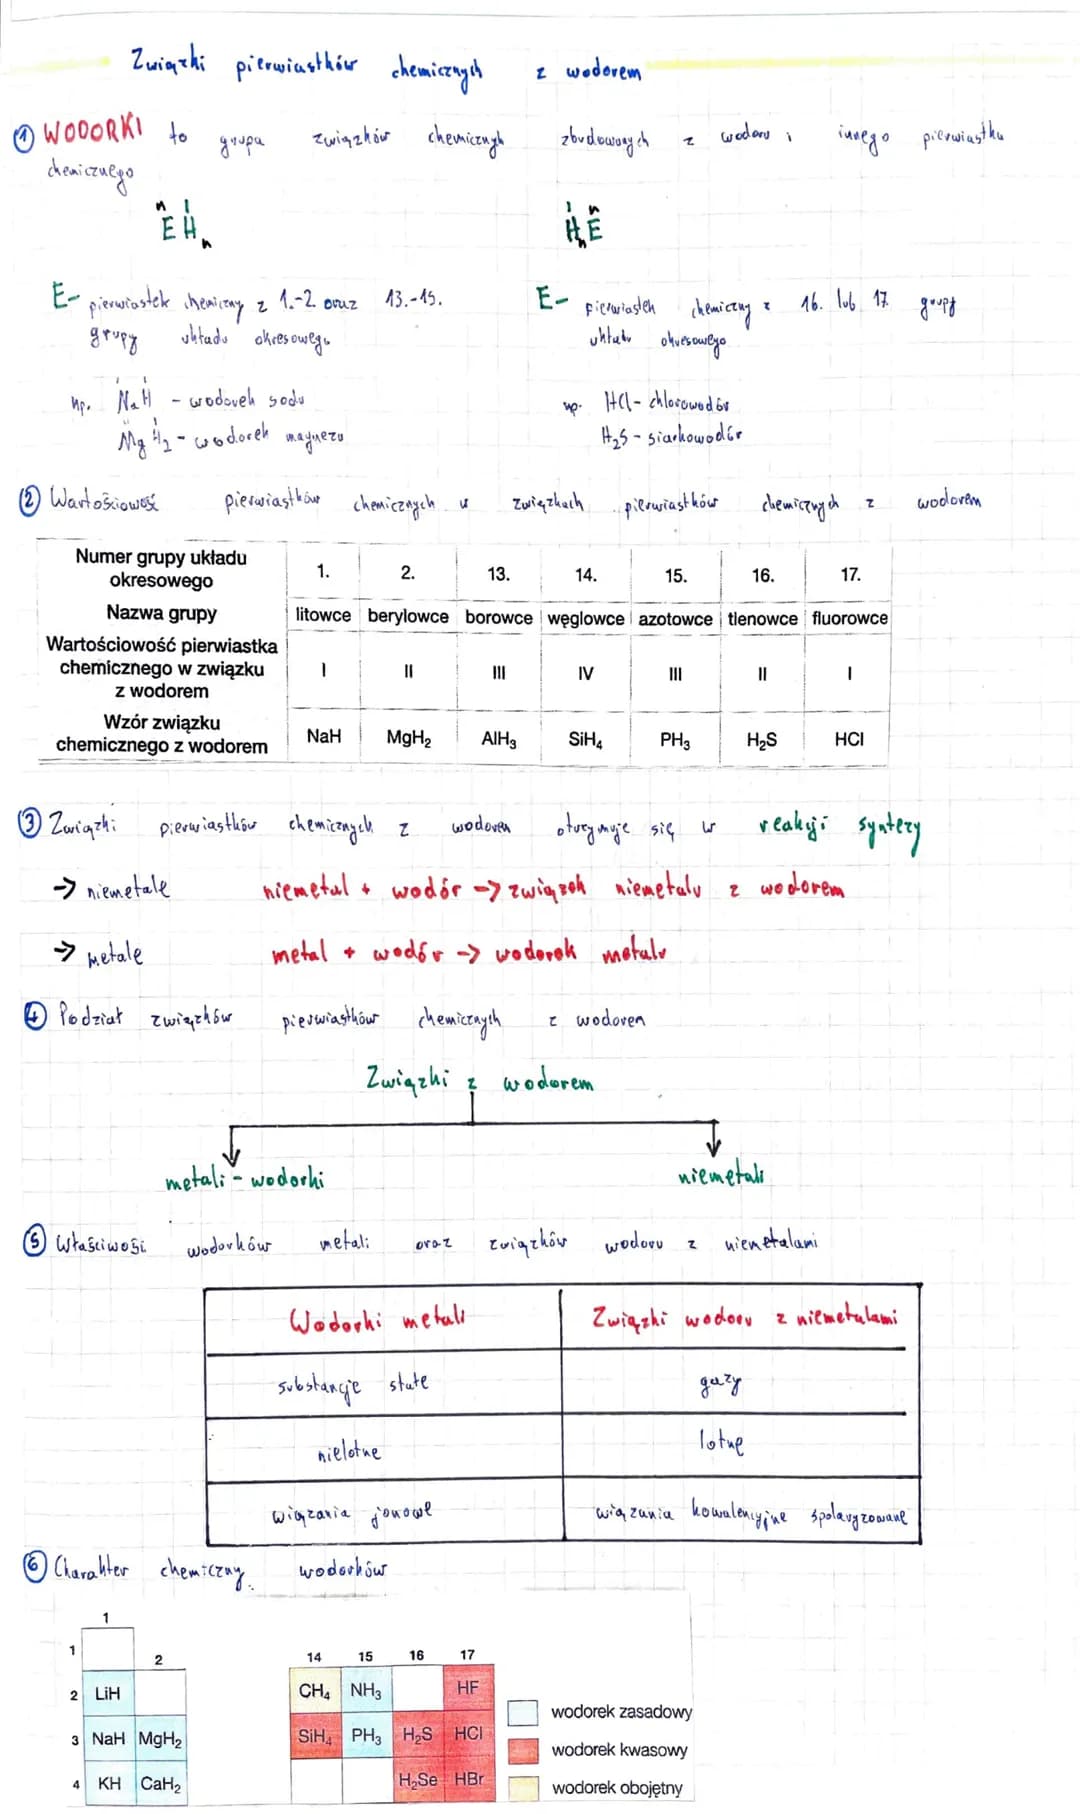 Związki pierwiastków chemicznych z wodorem
① WODORKI to grupa związków chemicznych zbudowanych z wodoru i innego pierwiastka
chemicznego
n I
E Hn
I n
HnE
E- pierwiastek chemiczny z 1.-2. oraz 13.-15.
grupy układu okresowego
E- pierwiastek chemiczny z 16. lub 17. grupy
układu okresowego
np. NaH - wodorek sodu
MgH₂ - wodorek magnezu
np. HCl - chlorowodór
H₂S - siarkowodór
② Wartościowość pierwiastków chemicznych w związkach pierwiastków chemicznych z wodorem
Numer grupy układu okresowego 1. 2. 13. 14. 15. 16. 17.
Nazwa grupy litowce berylowce borowce węglowce azotowce tlenowce fluorowce
Wartościowość pierwiastka chemicznego w związku z wodorem I II III IV III II I
Wzór związku chemicznego z wodorem NaH MgH₂ AlH₃ SiH₄ PH₃ H₂S HCl
③ Związki pierwiastków chemicznych z wodorem otrzymuje się w reakcji syntezy
→ niemetale niemetal + wodór → związek niemetalu z wodorem
→ metale metal + wodór → wodorek metalu
④ Podział związków pierwiastków chemicznych z wodorem
Związki z wodorem
metali - wodorki niemetali
⑤ Właściwości wodorków metali oraz związków wodoru z niemetalami
Wodorki metali Związki wodoru z niemetalami
substancje stałe gazy
nielotne lotne
wiązania jonowe wiązania kowalencyjne spolaryzowane
⑥ Charakter chemiczny wodorków
1
1 2 14 15 16 17
2 LiH CH₄ NH₃ HF
3 NaH MgH₂ SiH₄ PH₃ H₂S HCl
4 KH CaH₂ H₂Se HBr
wodorek zasadowy
wodorek kwasowy
wodorek obojętny